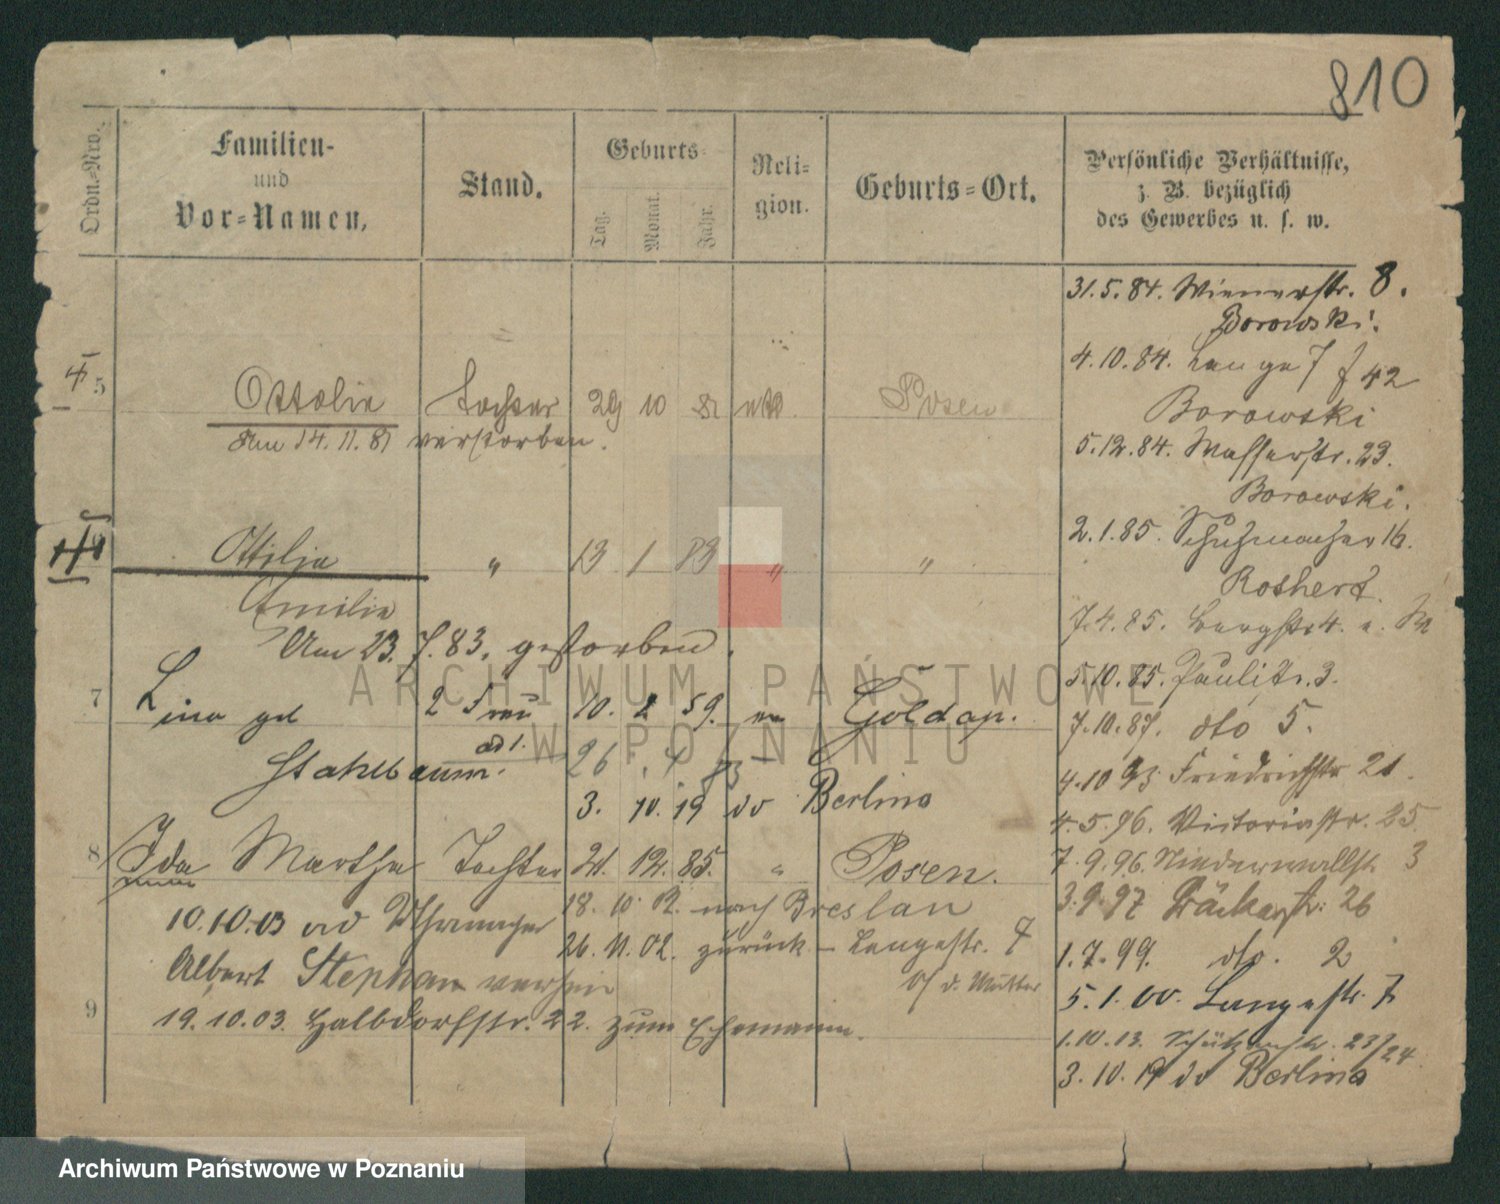 810
Ordn.-Nro.
Familien-
und
Vor-Namen.
Stand.
Geburts-
Tag.
Monat.
Jahr.
Reli-
gion.
Geburts-Ort.
Persönliche Verhältnisse,
z. B. bezüglich
des Gewerbes u. s. w.
31.5.84. Wienerstr. 8.
Borowski.
4.10.84. Lange 7
Borowski
5.12.84. Wasserstr. 23.
Borowski.
2.1.85. Schuhmacher 16.
Roshert.
7.4.85. Bergstr 4.
5.10.85. Paulistr. 3.
7.10.87. dto 5.
4.10 93 Friedrichstr 21.
4.5.96. Victoriastr. 25
7.9.96. Niederwallstr. 3
3.9.97 Bäckerstr. 26
1.7.99. dto. 2
5.1.00. Langestr. 7
1.10.13. Schützenstr. 23/24
3.10.19 do Berlina
5 Ottolie Tochter 29 10 81 Posen
Am 14.11.81 verstorben.
Ottilja " 13 1 83 " "
Emilie
Am 23.7.83. gestorben.
7 Lina geb 2 Frau 10. 2 59. Goldap.
Stahlbaum. ad 1. 26. 4
3. 10. 19 do Berlina
8 Ida Martha Tochter 21. 12. 85. " Posen.
18. 10. 02. nach Breslau
10.10.03 ad Uhrmacher
26. 11. 02. zurück – Langestr. 7
b/ d. Mutter
Albert Stephan
9
19.10.03. Halbdorfstr. 22. zum Ehemann.
ARCHIWUM PAŃSTWOWE
W POZNANIU
Archiwum Państwowe w Poznaniu